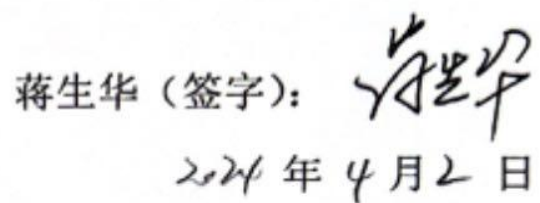 蒋生华（签字）：蒋生华
2024 年 4 月 2 日